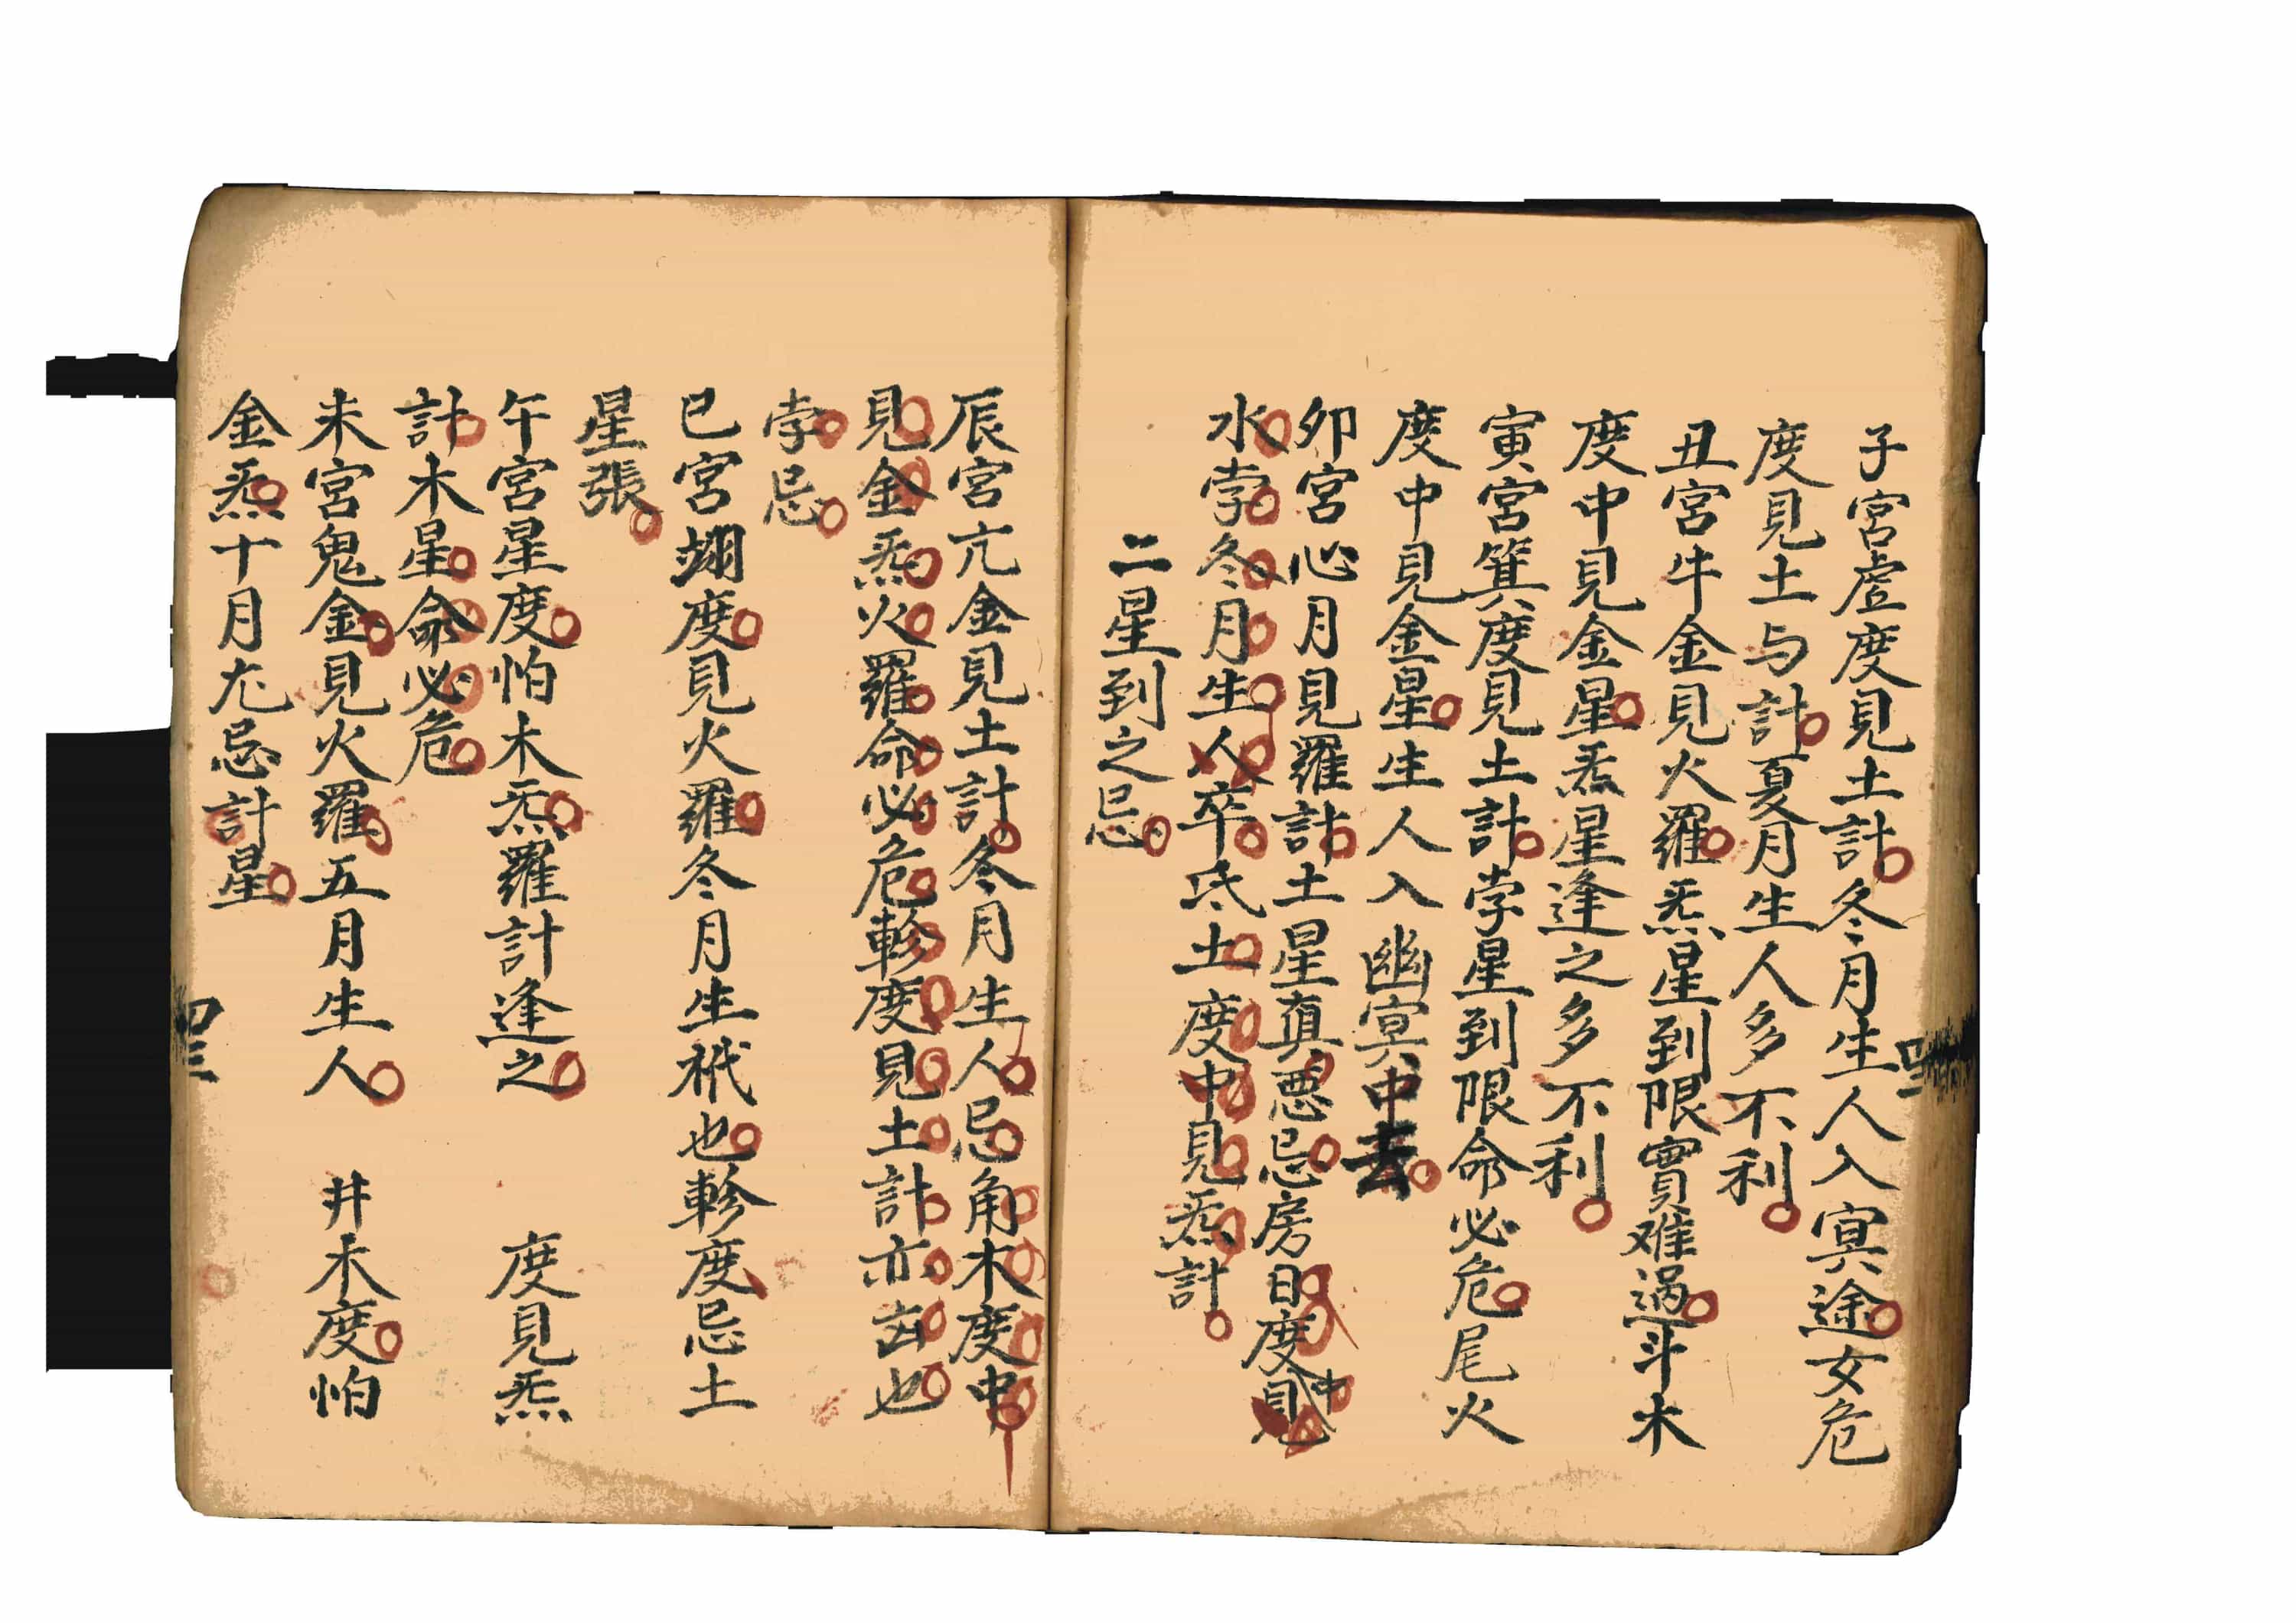 子宮虛度見土計冬月生人入冥途女危
度見土与計夏月生人多不利
丑宮牛金見火羅炁星到限實难過斗木
度中見金星炁星逢之多不利
寅宮箕度見土計孛星到限命必危尾火
度中見金星生人入幽冥中去
卯宮心月見羅計土星真恶忌房日度中見
水孛冬月生人卒氐土度中見炁計
二星到之忌
辰宮亢金見土計冬月生人忌角木度中
見金炁火羅命必危軫度見土計亦凶也
孛忌
巳宮翊度見火羅冬月生祇也軫度忌土
星張
午宮星度怕木炁羅計逢之 度見炁
計木星命必危
未宮鬼金見火羅五月生人 井木度怕
金炁十月尤忌計星